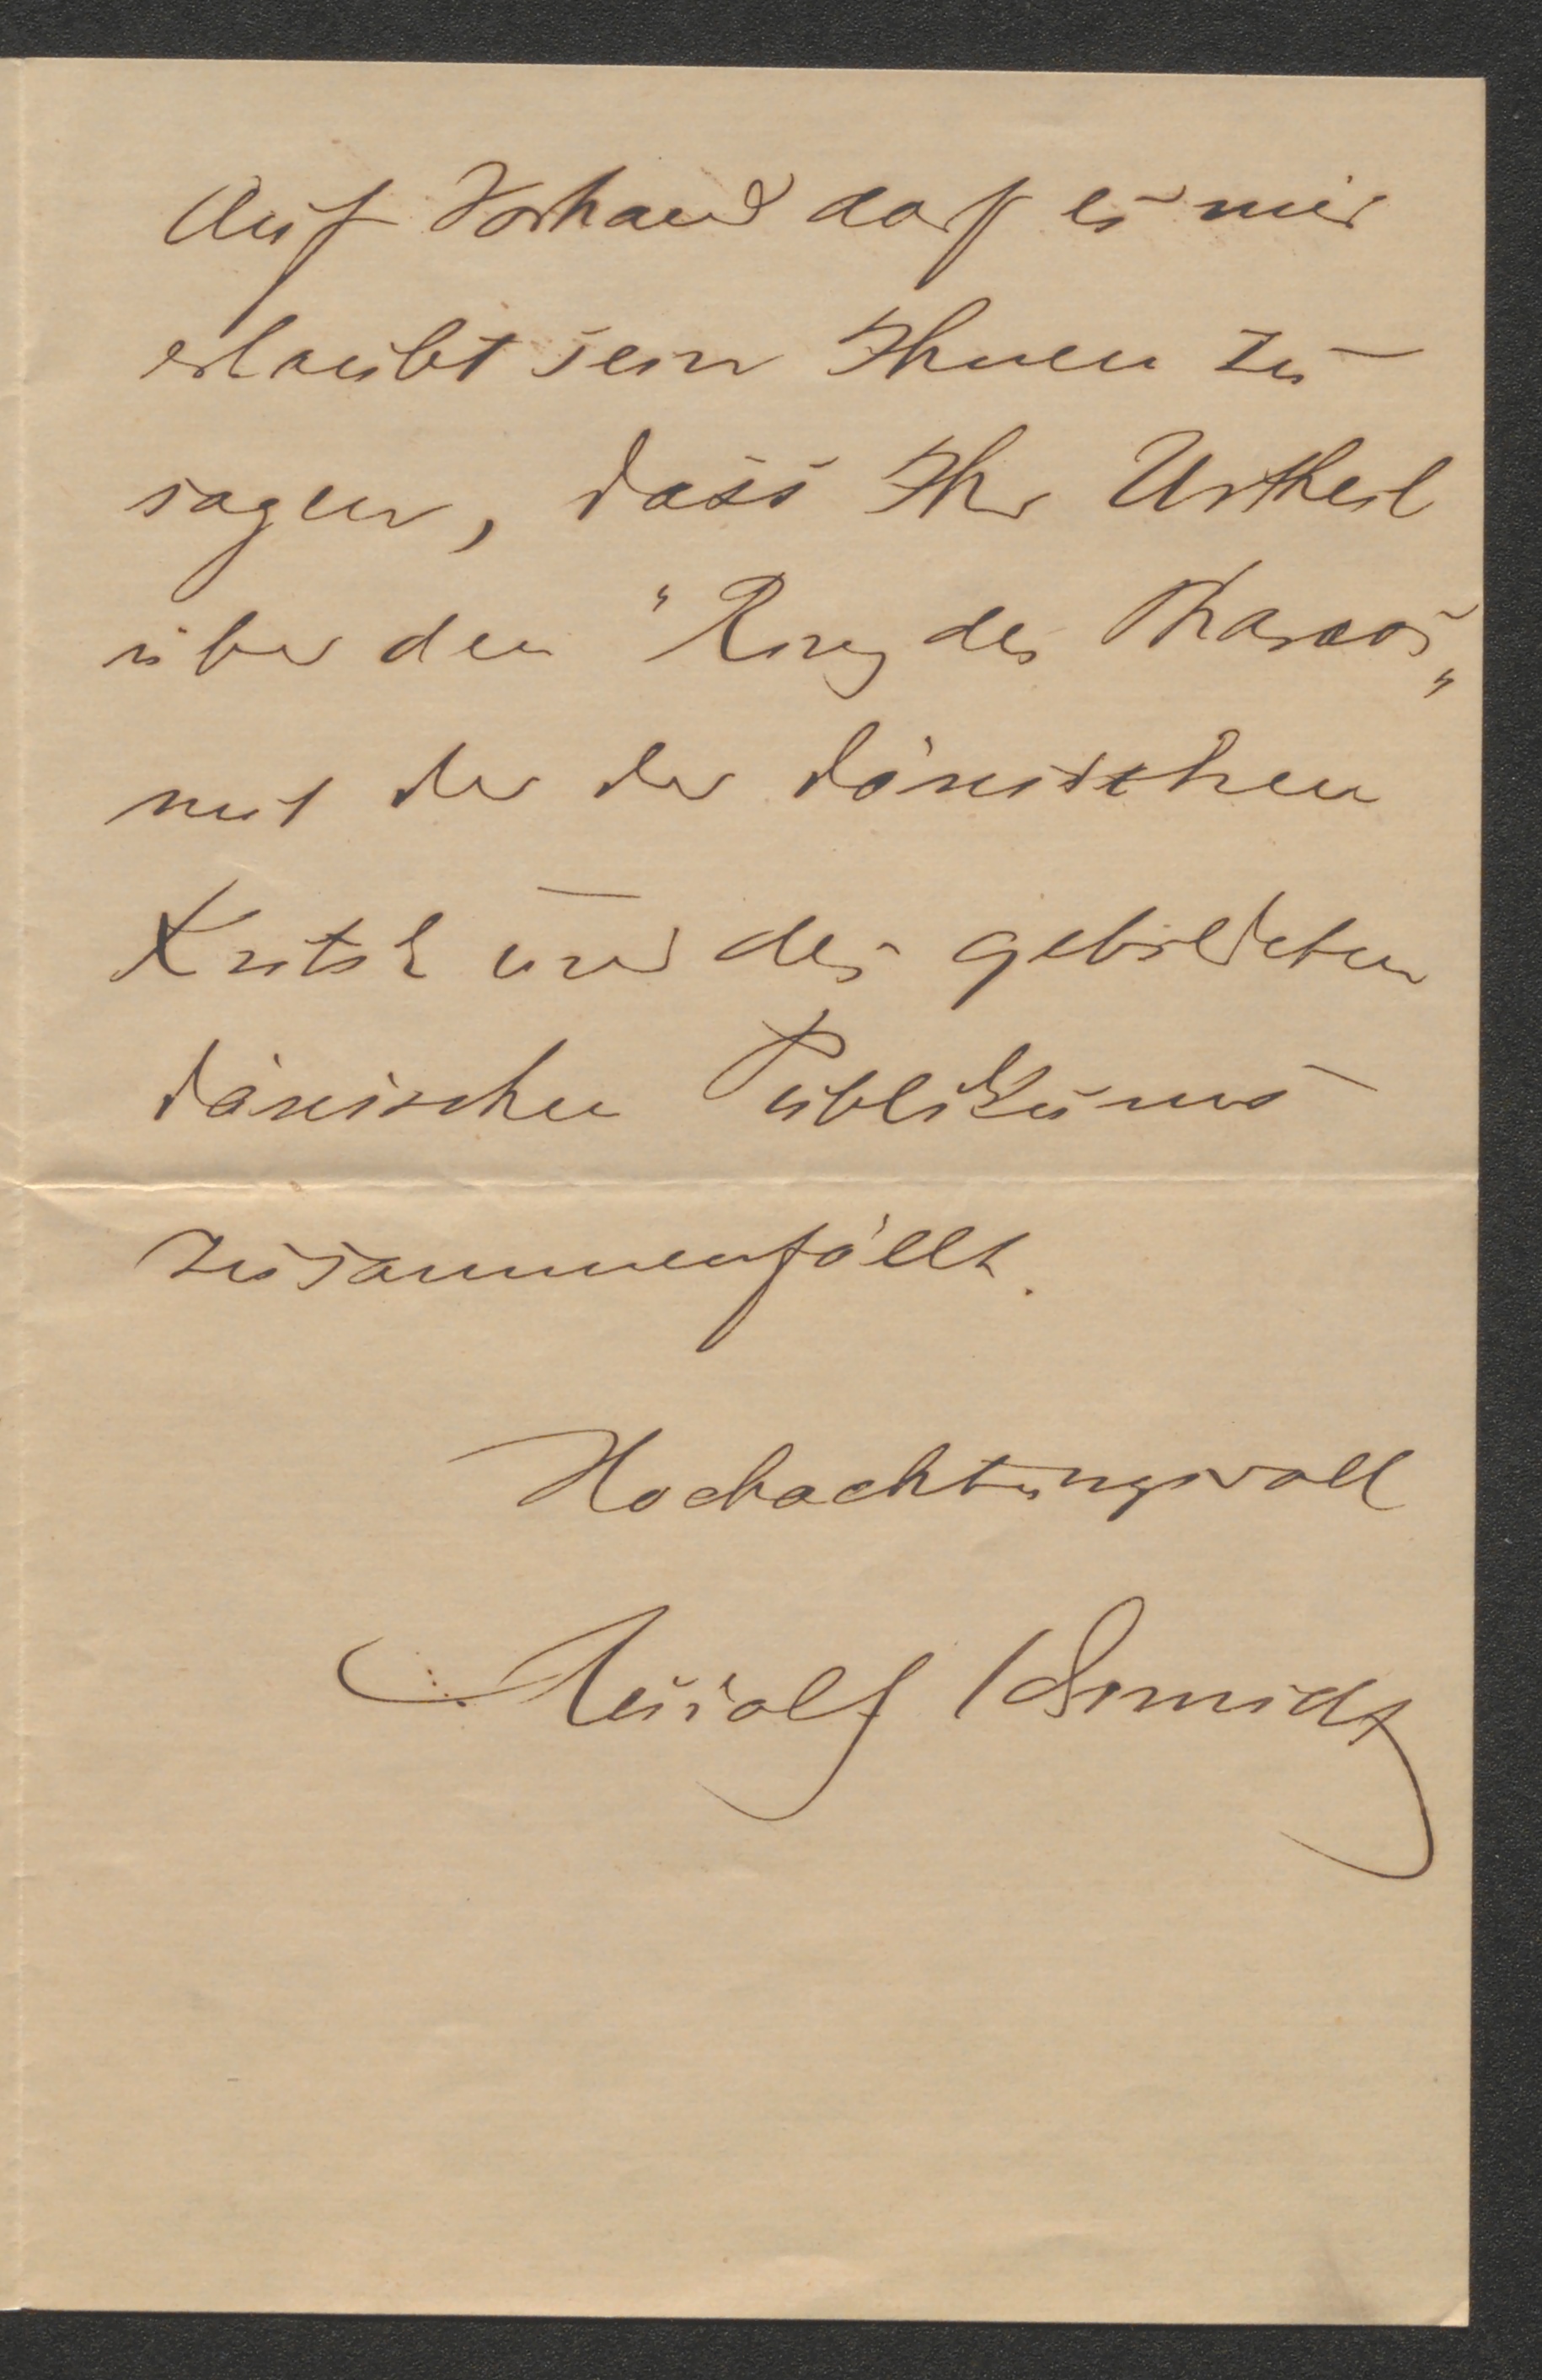 Auf Vorhand darf es mir
erlaubt sein Ihnen zu
sagen, dass Ihr Urtheil
über den "Ring des Pharaos„
mit der der dänischen
Kritik und des gebildeten
dänischen Publikums
zusammenfällt.
Hochachtungsvoll
Rudolf Schmidt